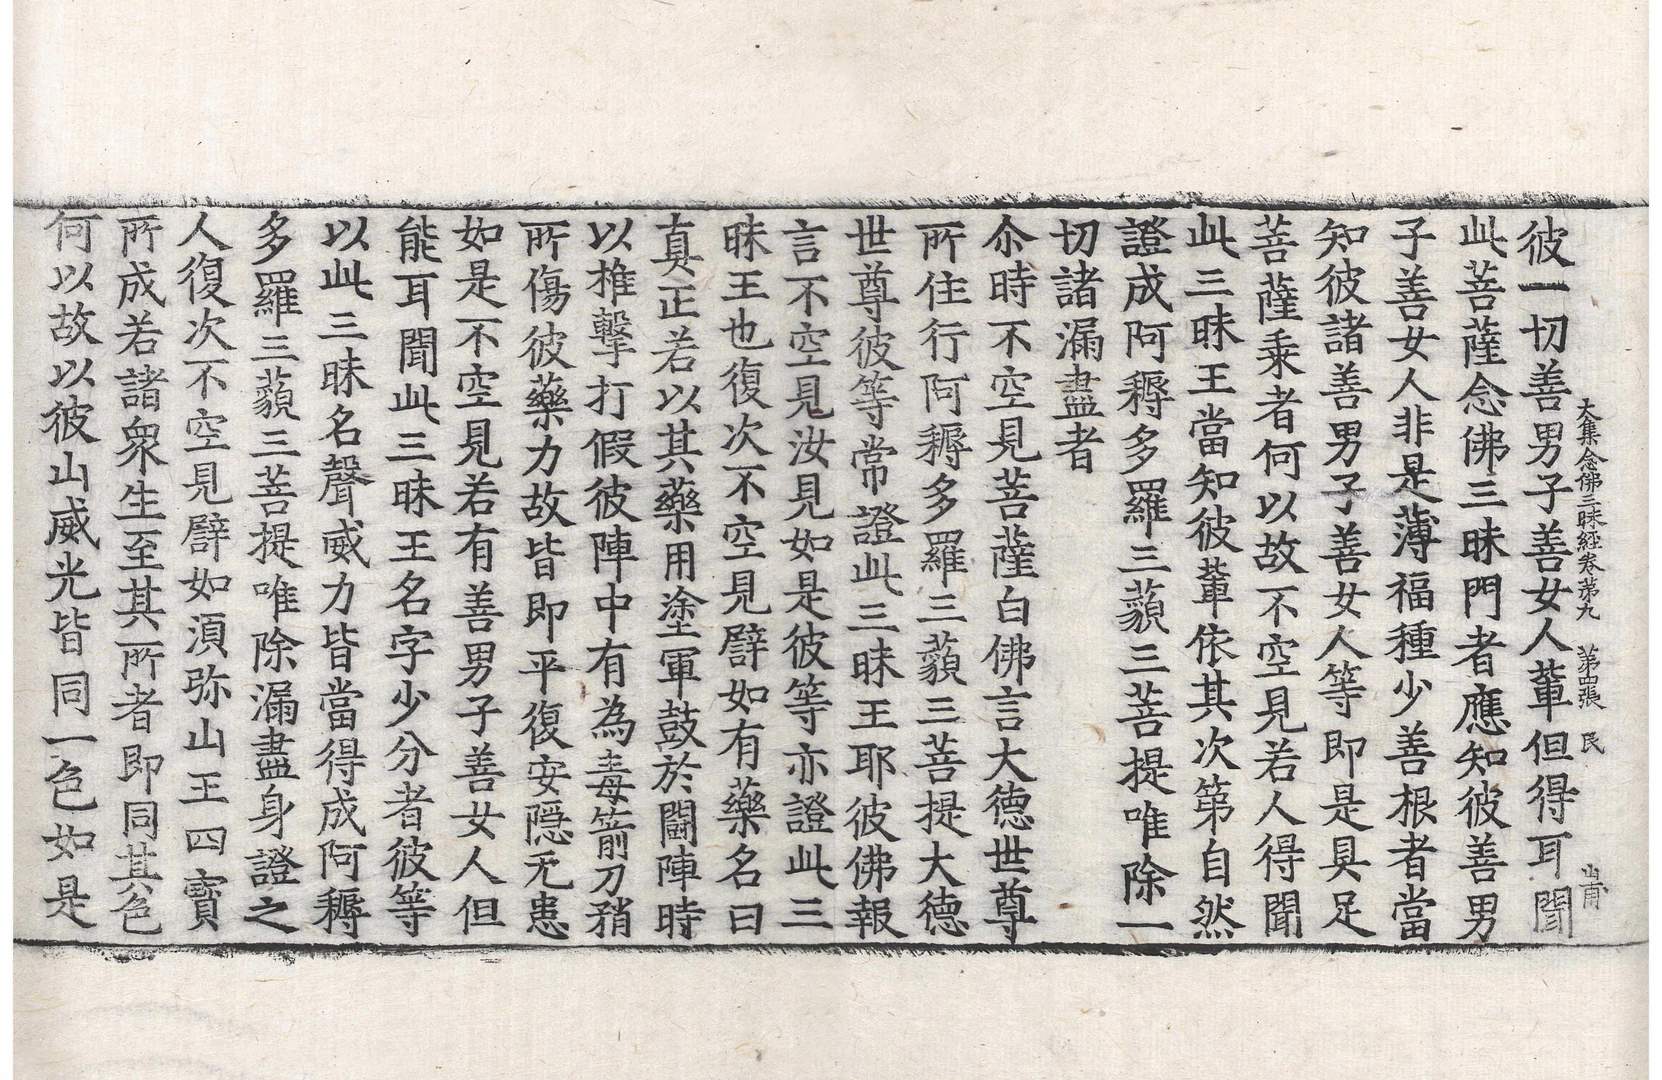 大集念佛三昧經卷第九 第張 民
彼一切善男子善女人軰但得耳聞
此菩薩念佛三昧門者應知彼善男
子善女人非是薄福種少善根者當
知彼諸善男子善女人等即是具足
菩薩乗者何以故不空見若人得聞
此三昧王當知彼軰依其次第自然
證成阿耨多羅三藐三菩提唯除一
切諸漏盡者
尒時不空見菩薩白佛言大德世尊
所住行阿耨多羅三藐三菩提大德
世尊彼等常證此三昧王耶彼佛報
言不空見汝見如是彼等亦證此三
昧王也復次不空見譬如有藥名曰
真正若以其藥用塗軍鼓於鬪陣時
以椎擊打假彼陣中有為毒箭刀矟
所傷彼藥力故皆即平復安隱无患
如是不空見若有善男子善女人但
能耳聞此三昧王名字少分者彼等
以此三昧名聲威力皆當得成阿耨
多羅三藐三菩提唯除漏盡身證之
人復次不空見譬如湏弥山王四寳
所成若諸衆生至其所者即同其色
何以故以彼山威光皆同一色如是